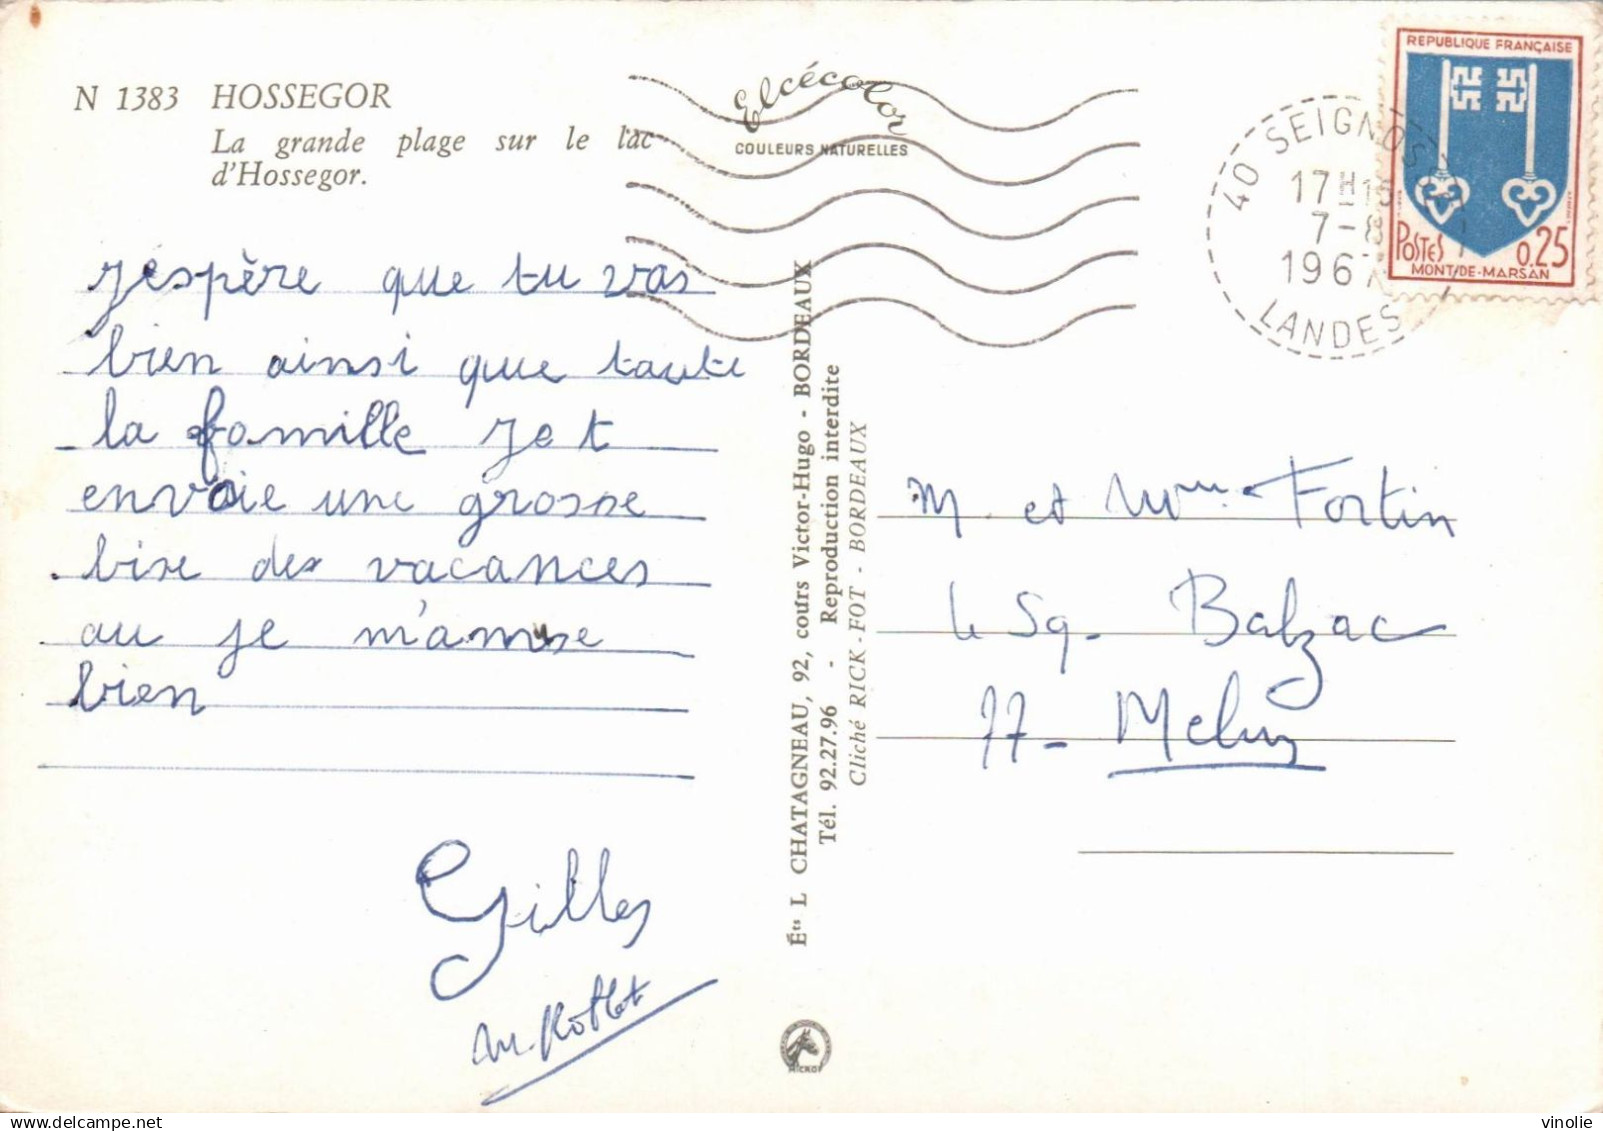 N 1383 HOSSEGOR
La grande plage sur le lac
d'Hossegor.
Elcécolor
COULEURS NATURELLES
40 SEIGNOS
17H15
7-8
1967
LANDES
REPUBLIQUE FRANÇAISE
POSTES 0.25
MONT-DE-MARSAN
J'éspère que tu vas
bien ainsi que taute
la famille Je t
envoie une grosse
bise des vacances
au je m'amuse
bien
Gilles
Éts L CHATAGNEAU, 92, cours Victor-Hugo - BORDEAUX
Tél. 92.27.96 - Reproduction interdite
Cliché RICK-FOT - BORDEAUX
M. et Mme Fortin
4 Sq. Balzac
77- Melun
vinolie